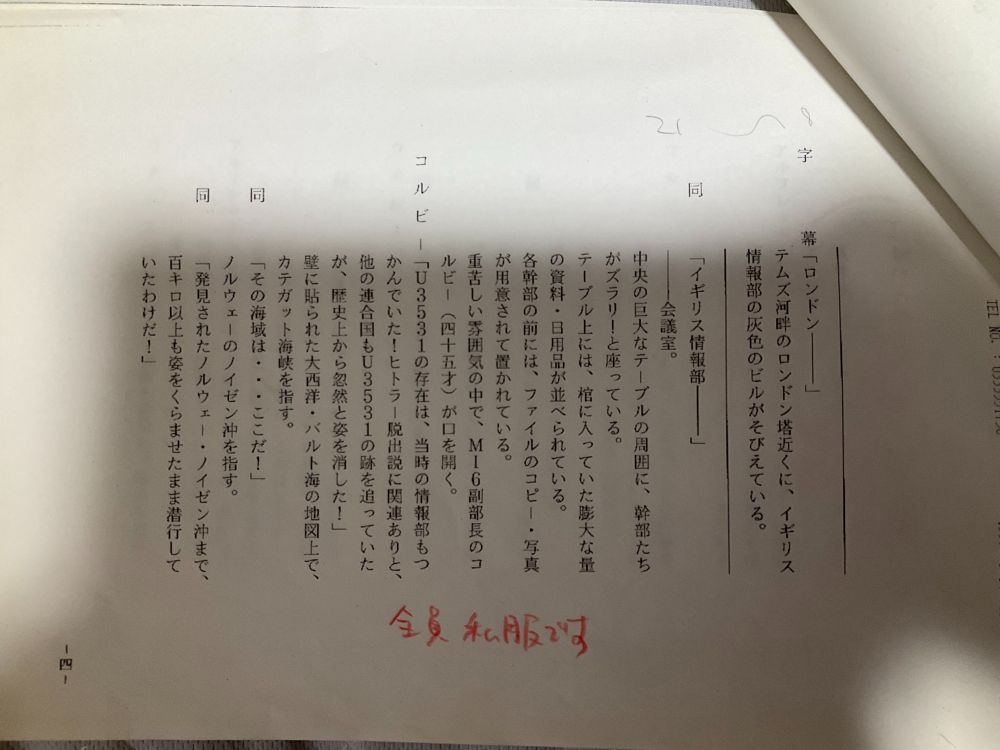 8〜21
字幕「ロンドン———」
テムズ河畔のロンドン塔近くに、イギリス
情報部の灰色のビルがそびえている。
同「イギリス情報部———」
———会議室。
中央の巨大なテーブルの周囲に、幹部たち
がズラリーと座っている。
テーブル上には、棺に入っていた膨大な量
の資料・日用品が並べられている。
各幹部の前には、ファイルのコピー・写真
が用意されて置かれている。
重苦しい雰囲気の中で、MI6副部長のコ
ルビー(四十五才)が口を開く。
コルビー「U3531の存在は、当時の情報部もつ
かんでいた!ヒトラー脱出説に関連ありと、
他の連合国もU3531の跡を追っていた
が、歴史上から忽然と姿を消した!」
壁に貼られた大西洋・バルト海の地図上で、
カテガット海峡を指す。
同「その海域は・・・ここだ!」
ノルウェーのノイゼン沖を指す。
同「発見されたノルウェー・ノイゼン沖まで、
百キロ以上も姿をくらませたまま潜行して
いたわけだ!」
全員 私服です
-四-